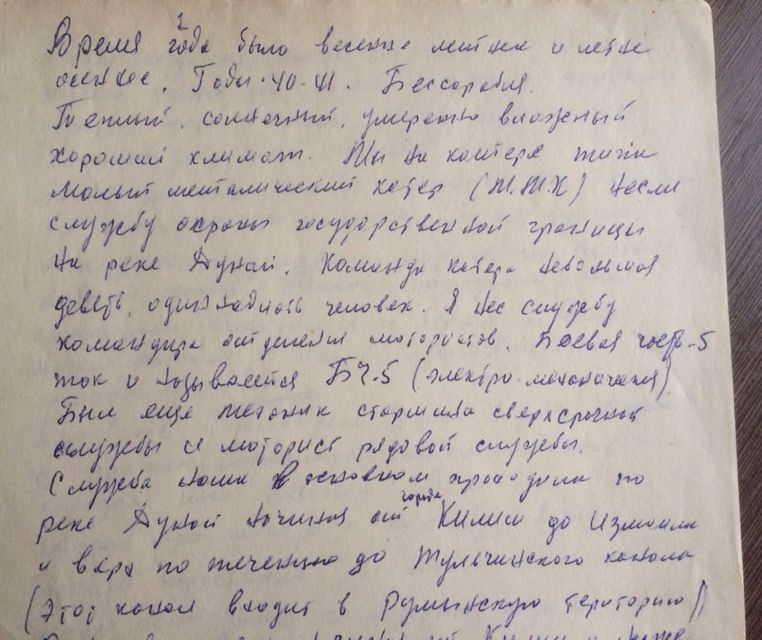 1
Время года было весенне летнее и летне
осеннее. Годы 40-41. Бессарабия.
Теплый, солнечный, умеренно влажный
хороший климат. Мы на катере типа
малый металический катер (М.М.К) несли
службу охраны государственной границы
на реке Дунай. Команда катера небольшая
девять, одиннадцать человек. Я нес службу
командира отделения мотористов. Боевая часть-5
так и называется БЧ-5 (электро-механическая)
Был еще механик старшина сверхсрочной
службы и моторист рядовой службы.
Служба наша в основном проходила по
реке Дунай начиная от города Килии до Измаила
и вверх по течению до Тульчинского канала
(Этот канал входит в Румынскую територию)